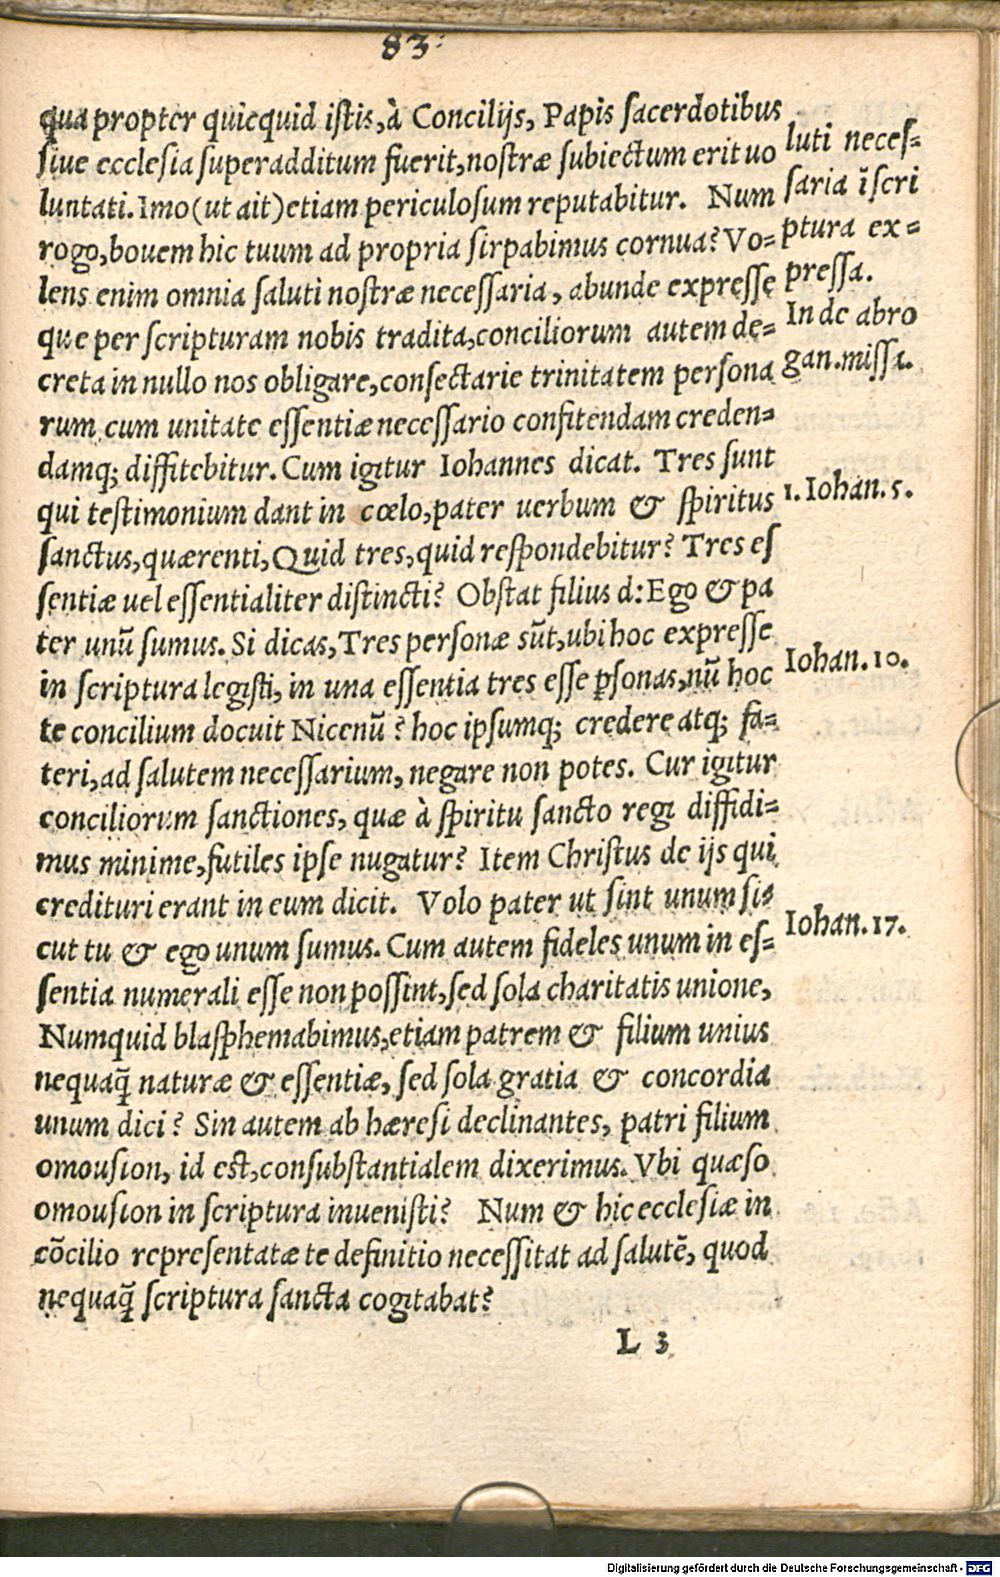 83
qua propter quicquid istis, à Concilijs, Papis sacerdotibus
siue ecclesia superadditum fuerit, nostræ subiectum erit uo
luntati. Imo (ut ait) etiam periculosum reputabitur. Num
rogo, bouem hic tuum ad propria sirpabimus cornua? Vo=
lens enim omnia saluti nostræ necessaria, abunde expresse
que per scripturam nobis tradita, conciliorum autem de=
creta in nullo nos obligare, consectarie trinitatem persona
rum cum unitate essentiæ necessario confitendam creden=
damq; diffitebitur. Cum igitur Iohannes dicat. Tres sunt
qui testimonium dant in cœlo, pater uerbum & spiritus
sanctus, quærenti, Quid tres, quid respondebitur? Tres es
sentiæ uel essentialiter distincti? Obstat filius d: Ego & pa
ter unū sumus. Si dicas, Tres personæ sūt, ubi hoc expresse
in scriptura legisti, in una essentia tres esse ꝑsonas, nū hoc
te concilium docuit Nicenū? hoc ipsumq; credere atq; fa=
teri, ad salutem necessarium, negare non potes. Cur igitur
conciliorum sanctiones, quæ à spiritu sancto regi diffidi=
mus minime, futiles ipse nugatur? Item Christus de ijs qui
credituri erant in eum dicit. Volo pater ut sint unum si=
cut tu & ego unum sumus. Cum autem fideles unum in es=
sentia numerali esse non possint, sed sola charitatis unione,
Numquid blasphemabimus, etiam patrem & filium unius
nequaq̃ naturæ & essentiæ, sed sola gratia & concordia
unum dici? Sin autem ab hæresi declinantes, patri filium
omousion, id est, consubstantialem dixerimus. Vbi quæso
omousion in scriptura inuenisti? Num & hic ecclesiæ in
cōcilio representatæ te definitio necessitat ad salutē, quod
nequaq̃ scriptura sancta cogitabat?
L 3
luti neces=
saria ī scri
ptura ex=
pressa.
In de abro
gan. missa.
1. Iohan. 5.
Iohan. 10.
Iohan. 17.
Digitalisierung gefördert durch die Deutsche Forschungsgemeinschaft - DFG